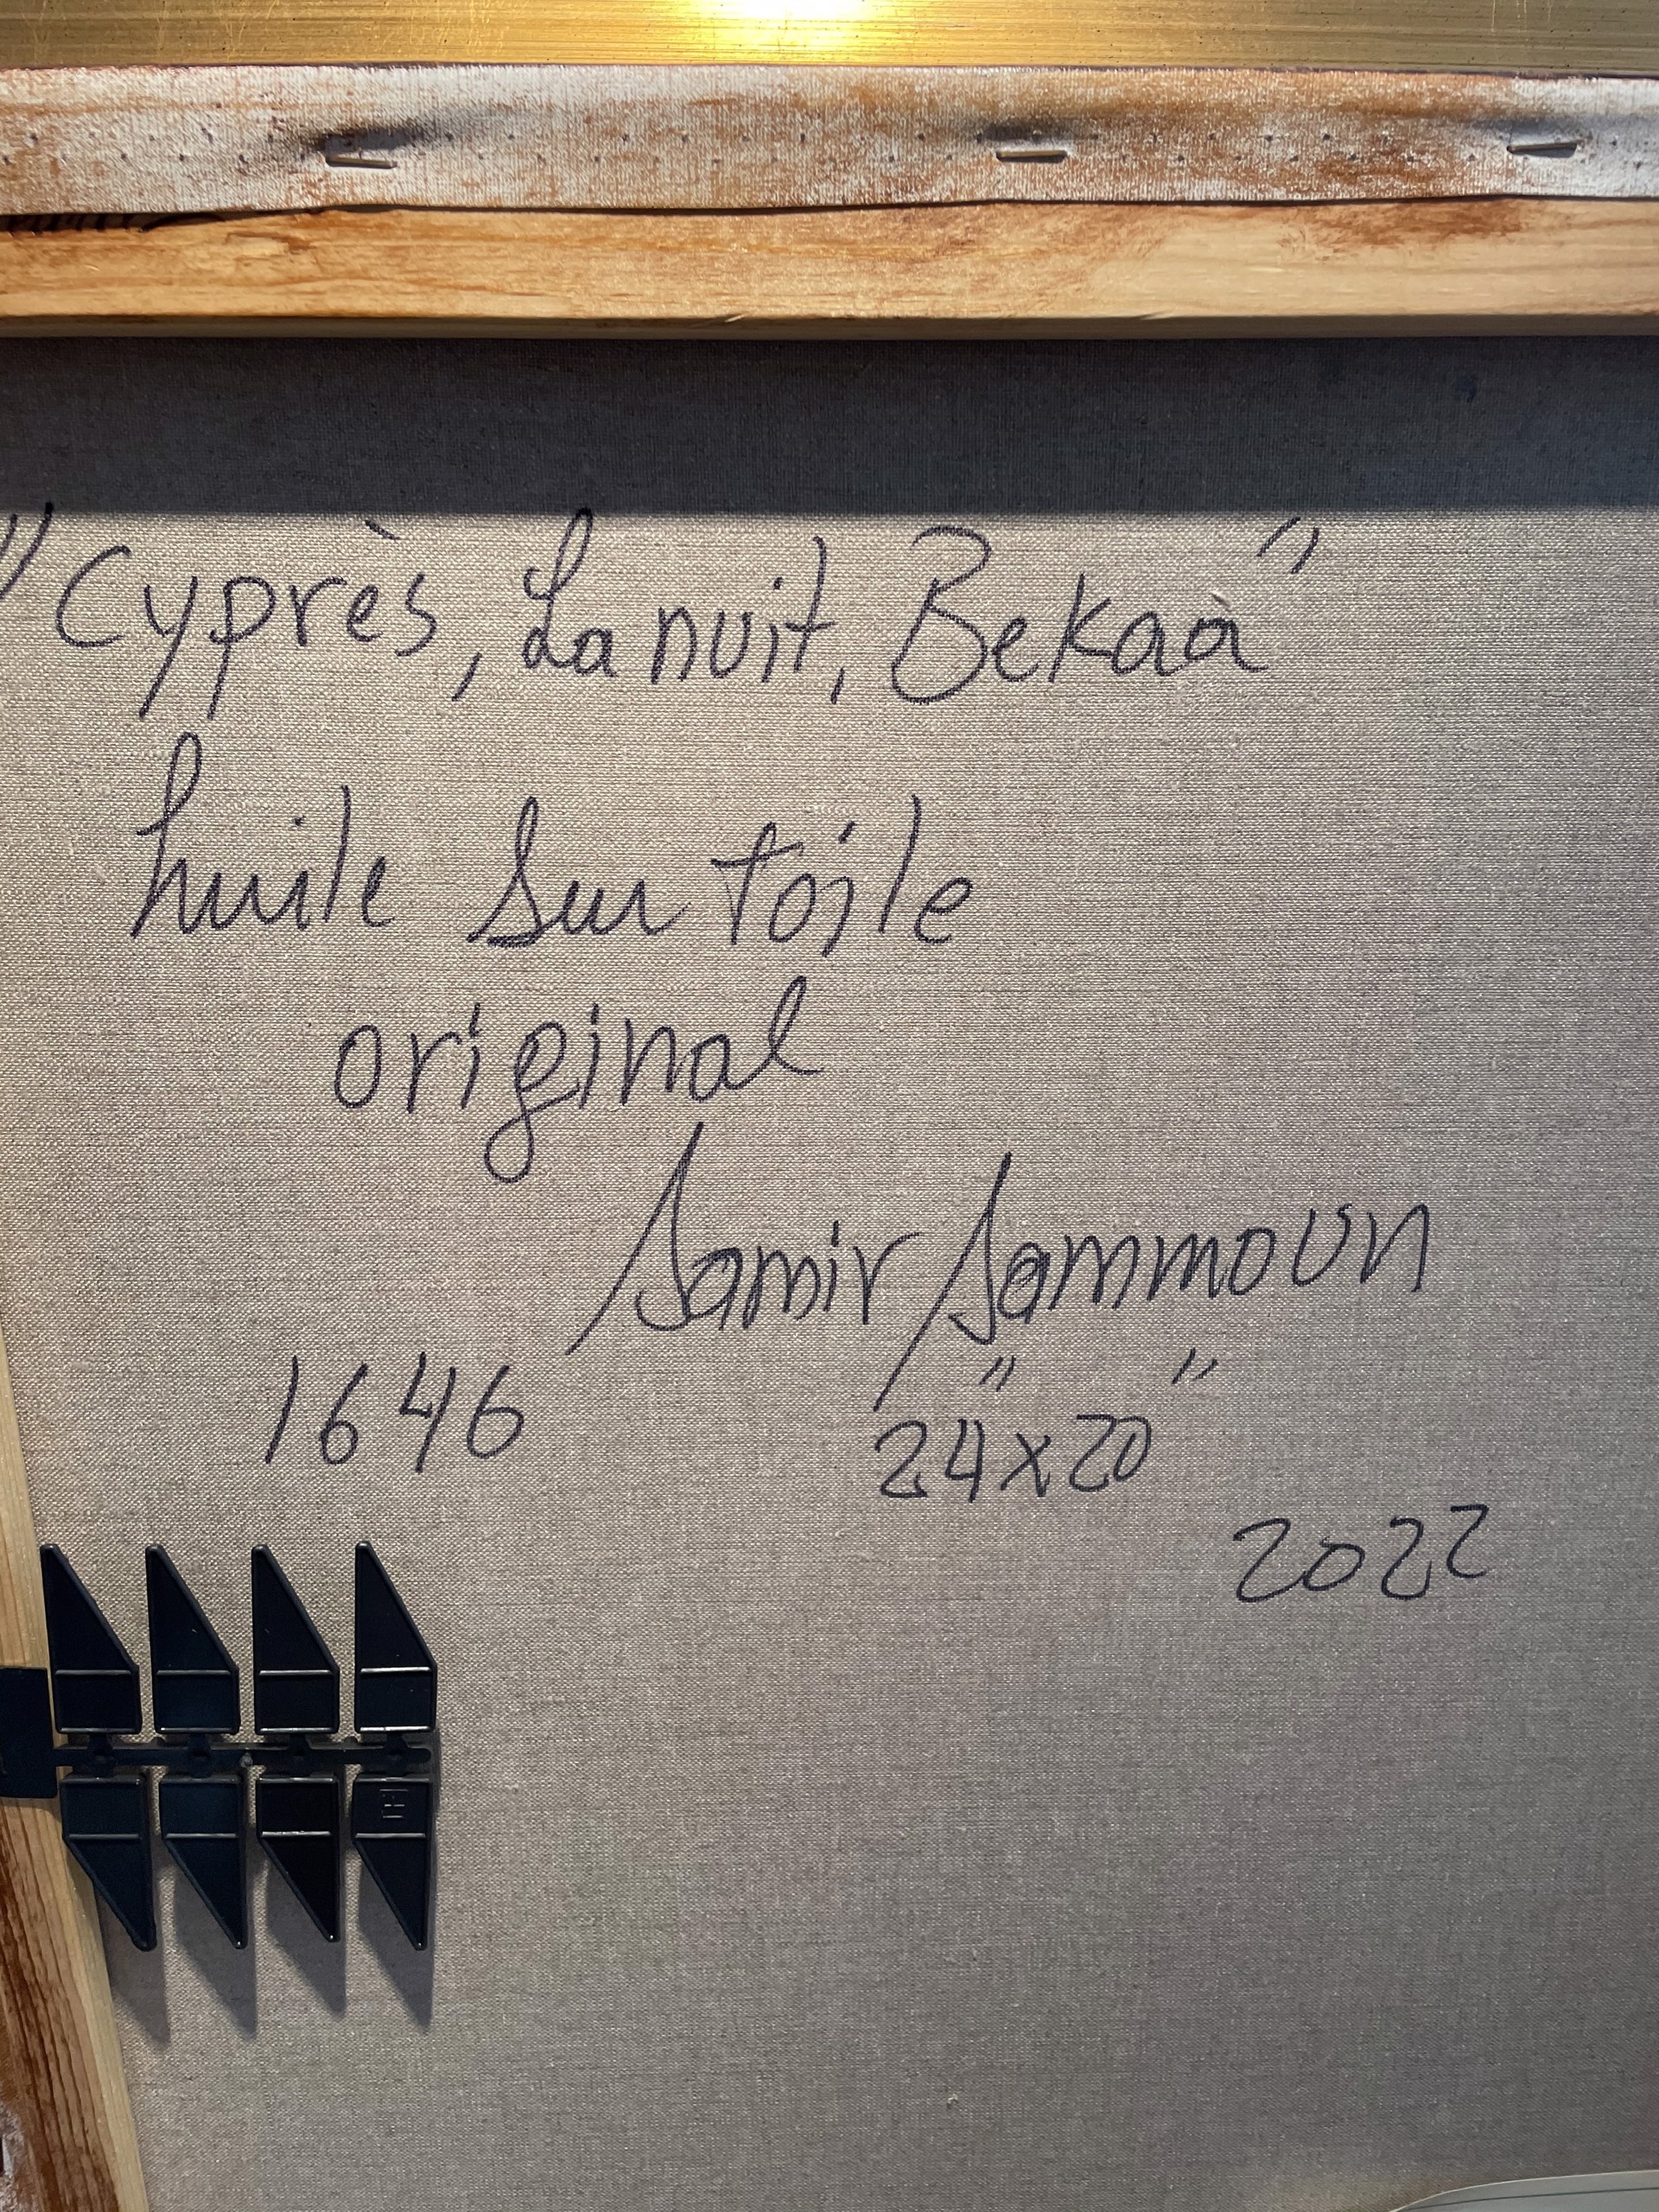 "Cyprès, La nuit, Bekaa"
huile sur toile
original
Samir Sammoun
1646 24"x20"
2022